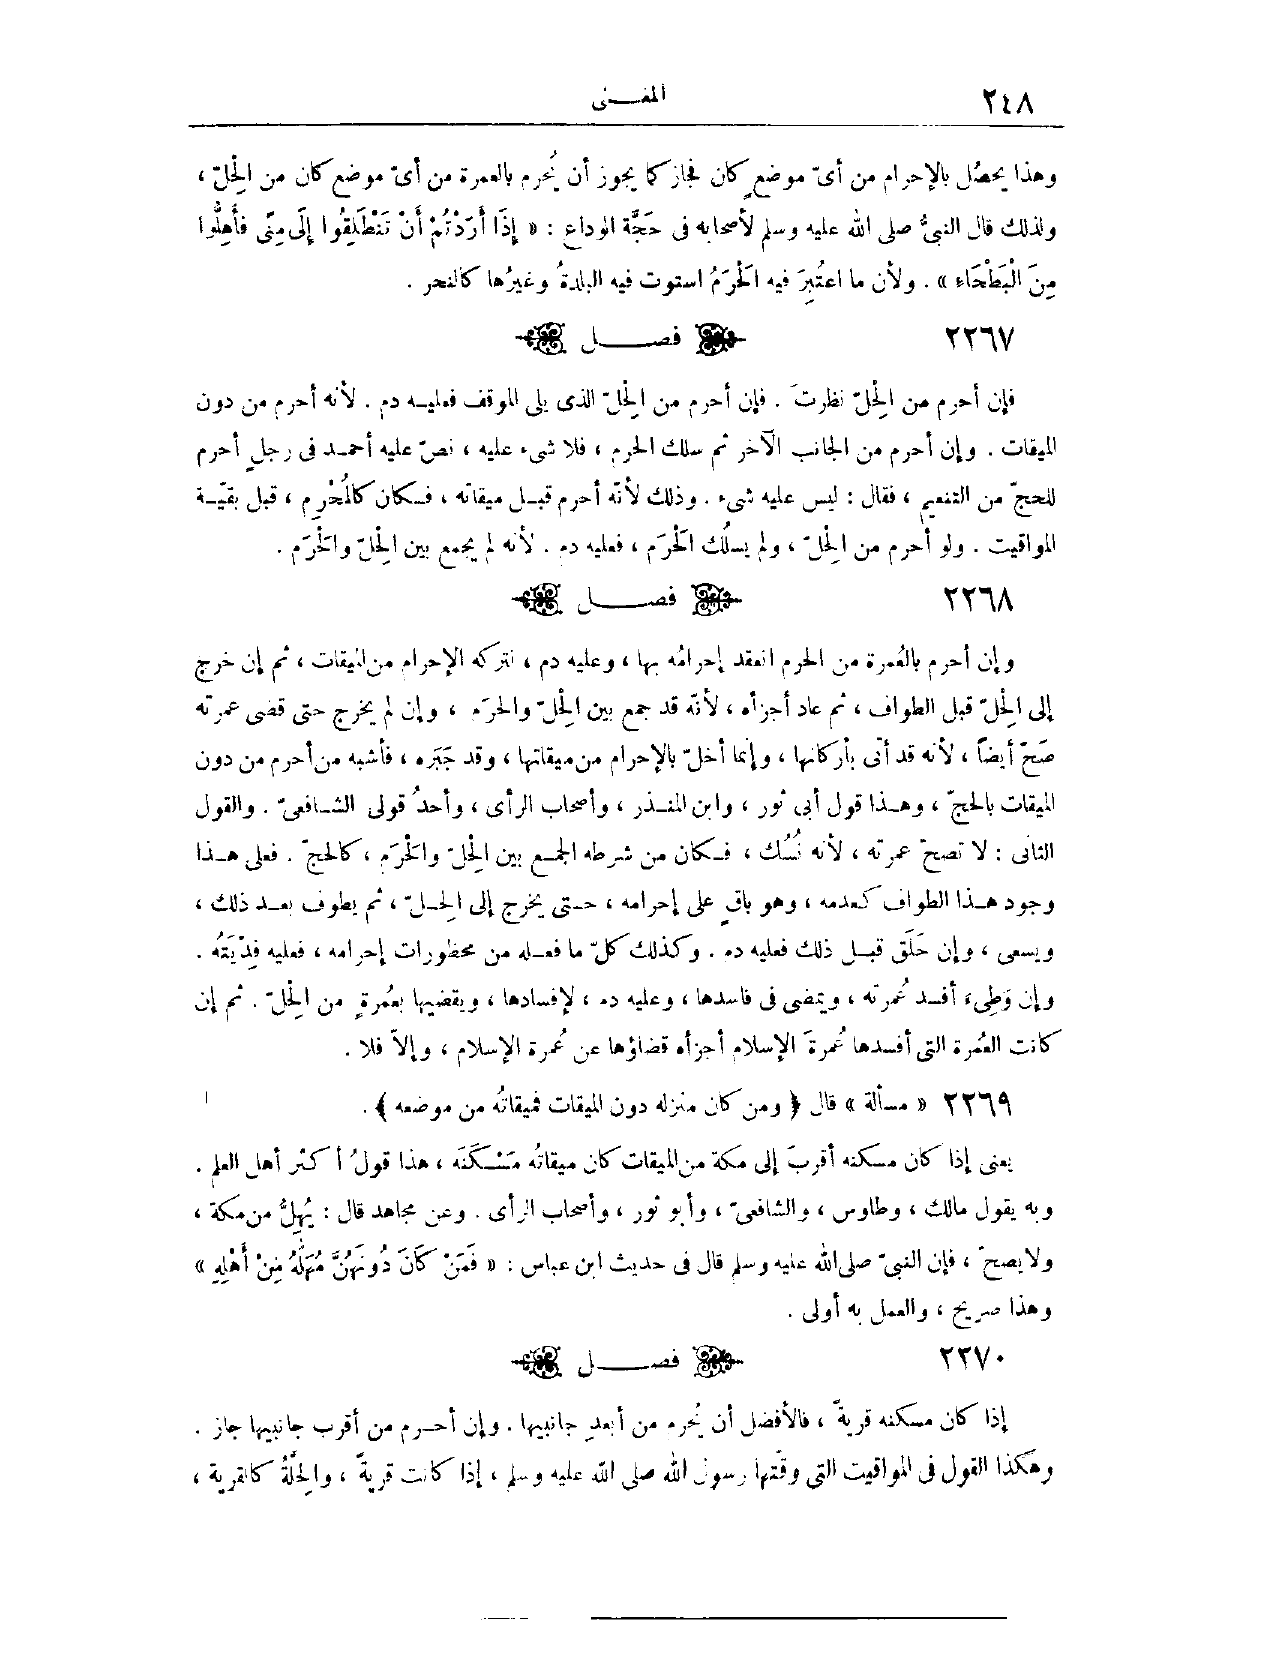 ٢٤٨
المغـــنى
وهذا يحصُل بالإحرام من أىّ موضعٍ كان فجاز كما يجوز أن يُحرم بالعمرة من أىّ موضع كان من الحِلّ ،
ولذلك قال النبىُّ صلى الله عليه وسلم لأصحابه فى حَجَّة الوداع : « إِذَا أَرَدْتُمْ أَنْ تَنْطَلِقُوا إِلَى مِنًى فَأَهِلُّوا
مِنَ الْبَطْحَاءِ » . ولأن ما اعتُبِرَ فيه الحَرَمُ استوت فيه البلدةُ وغيرُها كالنحر .
٢٢٦٧ فصـــل
فإن أحرم من الحِلّ نظرتَ . فإن أحرم من الحِلّ الذى يلى الموقف فعليـه دم . لأنه أحرم من دون
الميقات . وإن أحرم من الجانب الآخر ثم سلك الحرم ، فلا شىء عليه ، نصّ عليه أحمـد فى رجلٍ أحرم
للحجّ من التنعيم ، فقال : ليس عليه شىء . وذلك لأنّه أحرم قبـل ميقاته ، فـكان كالمُحْرِم ، قبل بقيّـة
المواقيت . ولو أحرم من الحِلّ ، ولم يسلُك الحَرَم ، فعليه دم . لأنه لم يجمع بين الحِلّ والحَرَم .
٢٢٦٨ فصـــل
وإن أحرم بالعُمرة من الحرم انعقد إحرامُه بها ، وعليه دم ، لتركه الإحرام من الميقات ، ثم إن خرج
إلى الحِلّ قبل الطواف ، ثم عاد أجزأه ، لأنّه قد جمع بين الحِلّ والحرَم ، وإن لم يخرج حتى قضى عمرته
صَحّ أيضاً ، لأنه قد أتى بأركانها ، وإنما أخلّ بالإحرام من ميقاتها ، وقد جَبَره ، فأشبه من أحرم من دون
الميقات بالحجّ ، وهـذا قول أبى ثور ، وابن المنـذر ، وأصحاب الرأى ، وأحدُ قولى الشـافعىّ . والقول
الثانى : لا تصحّ عمرته ، لأنه نُسُك ، فـكان من شرطه الجمـع بين الحِلّ والحَرَم ، كالحجّ . فعلى هـذا
وجود هـذا الطواف كعدمه ، وهو باقٍ على إحرامه ، حـتى يخرج إلى الحـلّ ، ثم يطوف بعـد ذلك ،
ويسعى ، وإن حَلَق قبـل ذلك فعليه دم . وكذلك كلّ ما فعـله من محظورات إحرامه ، فعليه فِدْيَتُه .
وإن وَطِىءَ أفسـد عُمرته ، ويمضى فى فاسدها ، وعليه دم ، لإفسادها ، ويقضيها بعُمرةٍ من الحِلّ . ثم إن
كانت العُمرة التى أفسدها عُمرةَ الإسلام أجزأه قضاؤها عن عُمرة الإسلام ، وإلاّ فلا .
٢٢٦٩ « مسألة » قال ﴿ ومن كان منزله دون الميقات فميقاتُه من موضعه ﴾ .
يعنى إذا كان مسكنه أقربَ إلى مكة من الميقات كان ميقاتُه مَسْـكَنَه ، هذا قولُ أكثر أهل العلم .
وبه يقول مالك ، وطاوس ، والشافعىّ ، وأبو ثور ، وأصحاب الرأى . وعن مجاهد قال : يُهِلُّ من مكة ،
ولا يصحّ ، فإن النبىّ صلى الله عليه وسلم قال فى حديث ابن عباس : « فَمَنْ كَانَ دُونَهُنَّ مُهَلُّهُ مِنْ أَهْلِهِ »
وهذا صريح ، والعمل به أولى .
٢٢٧٠ فصـــل
إذا كان مسكنه قريةً ، فالأفضل أن يُحرم من أبعدِ جانبيها . وإن أحـرم من أقرب جانبيها جاز .
وهكذا القول فى المواقيت التى وقّتها رسول الله صلى الله عليه وسلم ، إذا كانت قريةً ، والحِلّةُ كالقرية ،